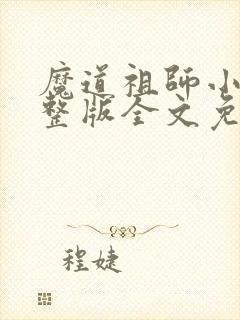 魔道祖師小
整版全文免
程婕